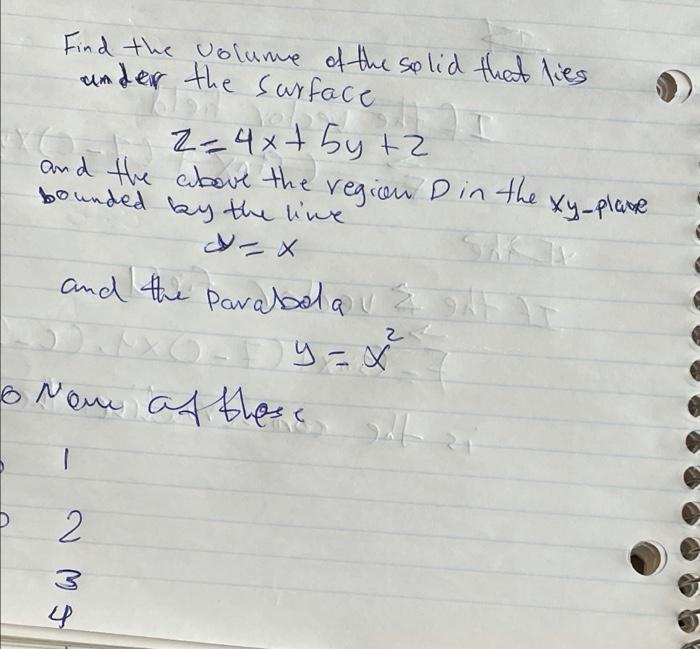 Find the volume of the solid that lies
under the surface
z = 4x + 5y + 2
and the above the region D in the xy-plane
bounded by the line
y = x
and the parabola
y = x²
None of these
1
2
3
4